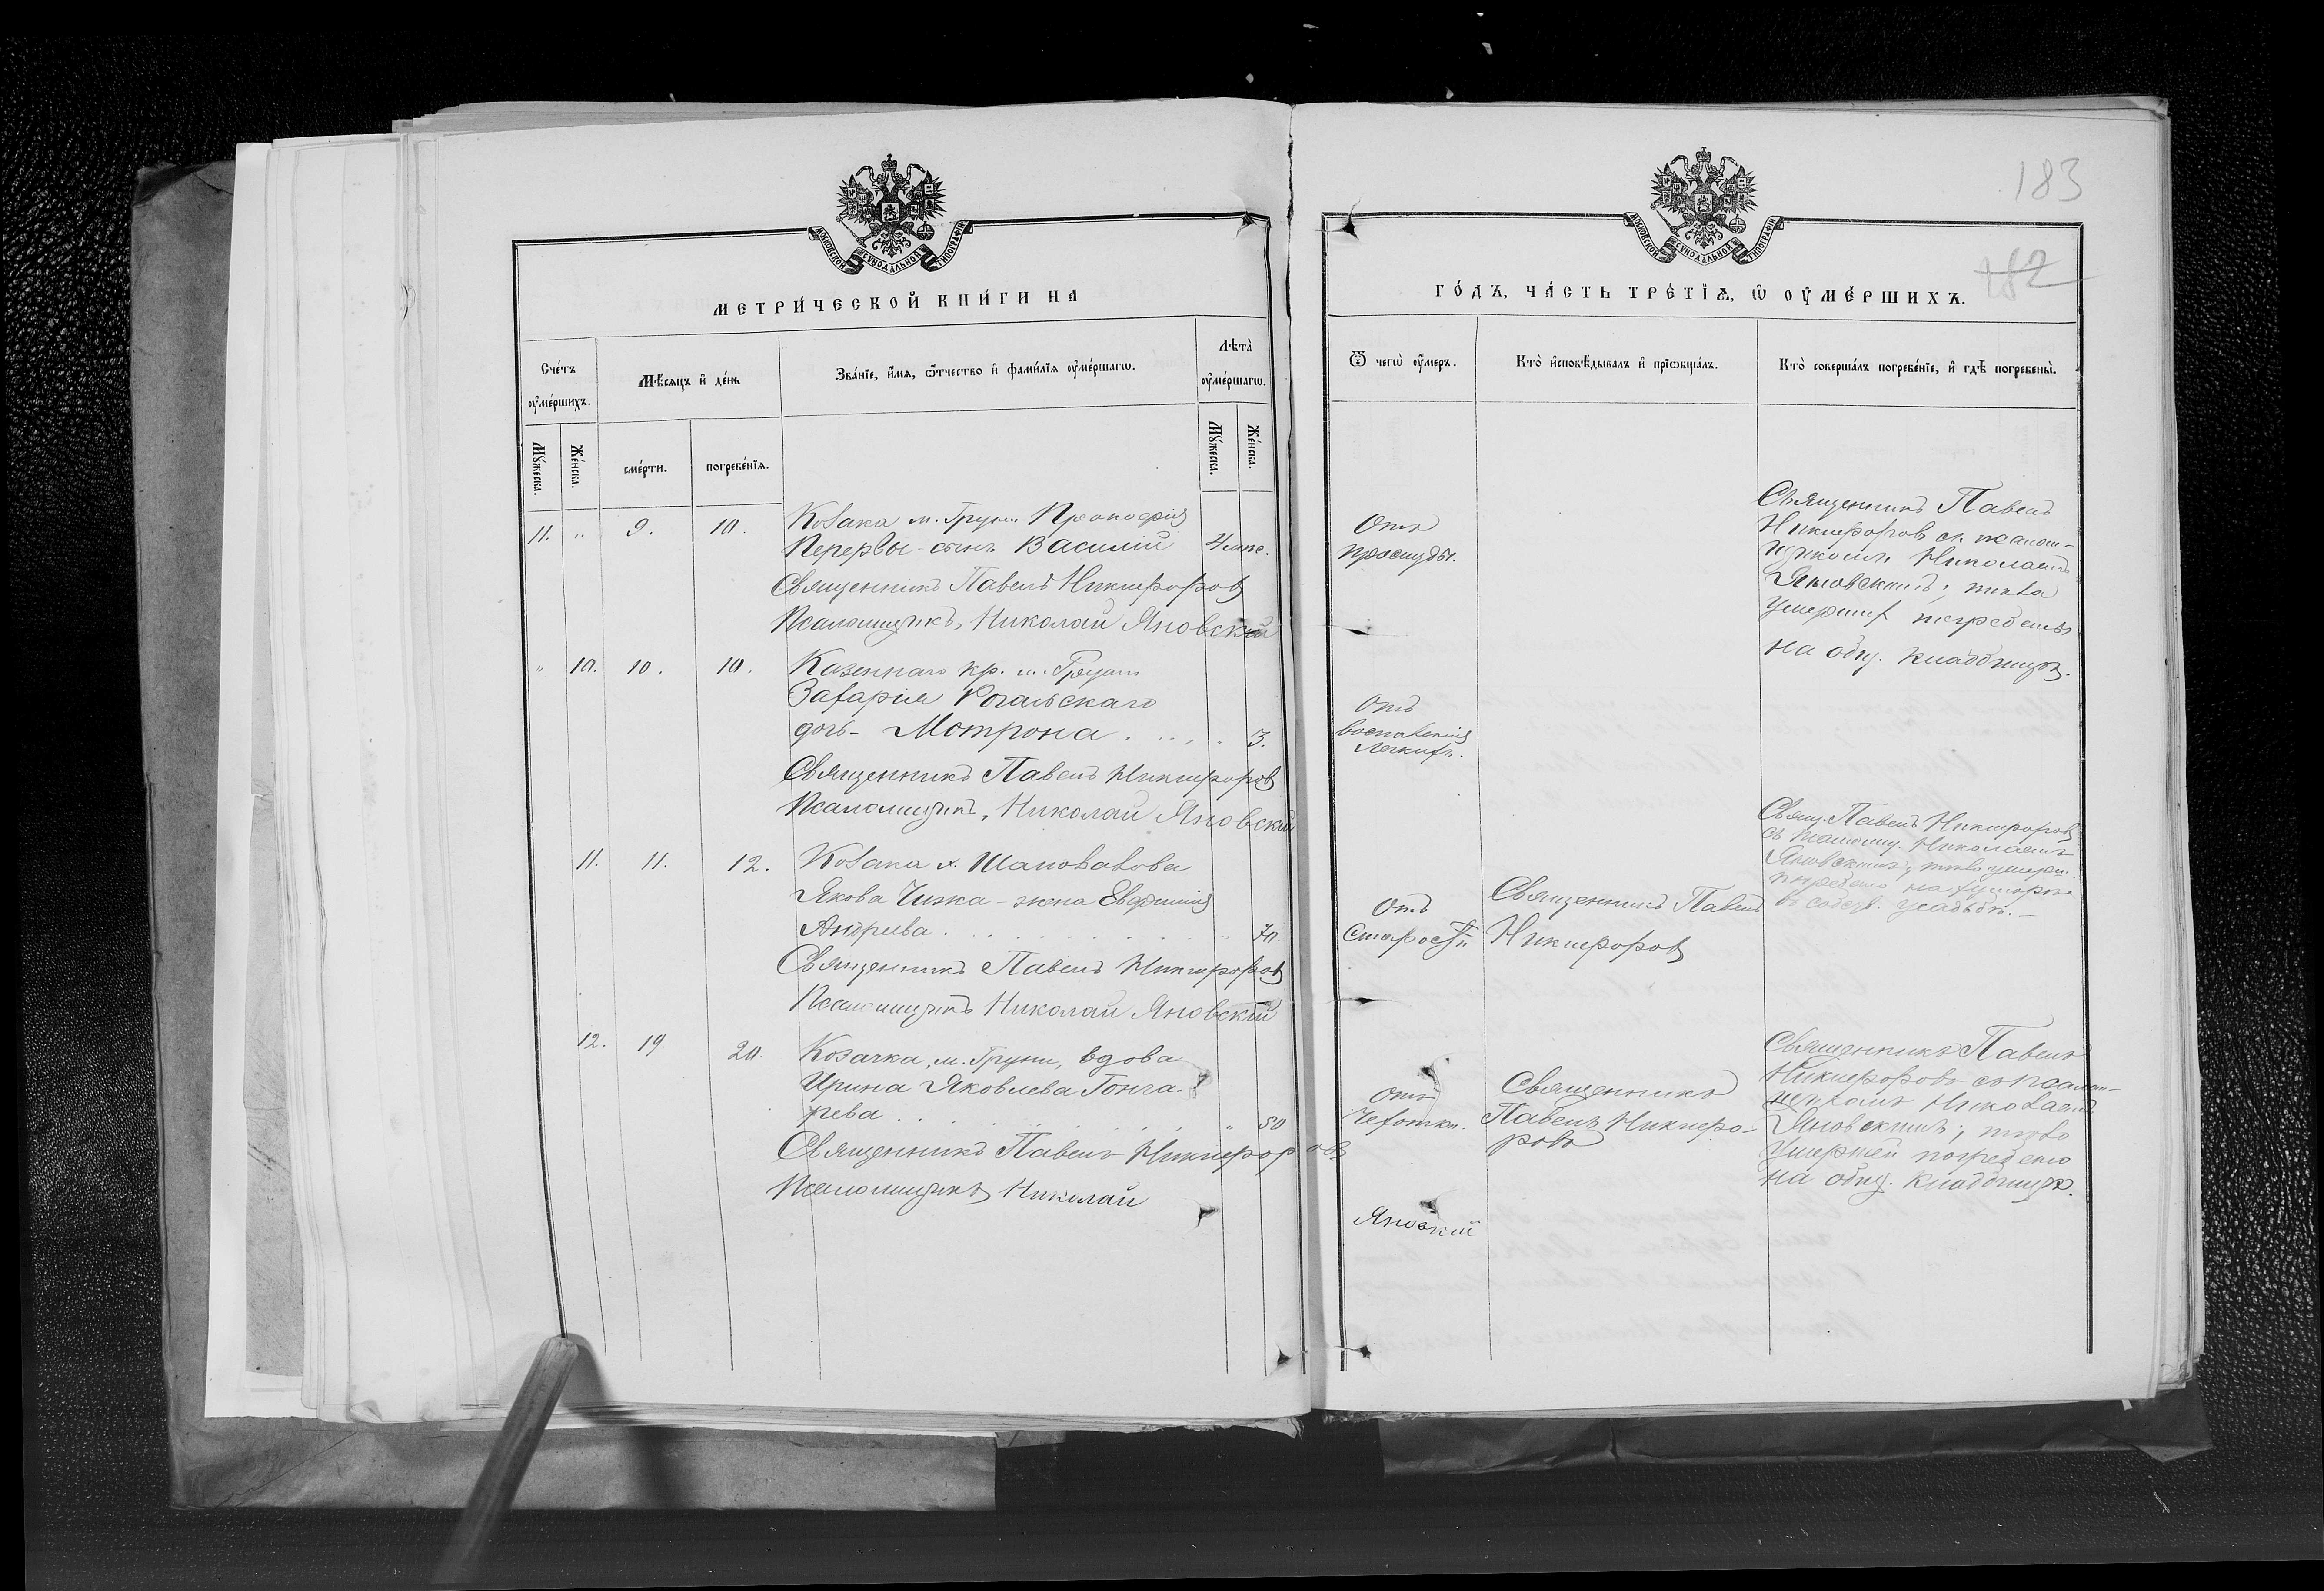 МОСКОВСКОЙ СѴНОДАЛЬНОЙ ТИПОГРАФІИ
МЕТРИ́ЧЕСКОЙ КНИ́ГИ НА
Сче́тъ оу҆ме́ршихъ.
Мѣ́сяцъ и҆ де́нь
Зва́нїе, и҆́мя, ѻ҆́тчество и҆ фами́лїя оу҆ме́ршагѡ.
Лѣта̀ оу҆ме́ршагѡ.
Мꙋ́жеска.
Же́нска.
сме́рти.
погребе́нїѧ.
Мꙋ́жеска.
Же́нска.
11. „ 9. 10. Козака м. Груни Прокофія
Перервы - сынъ Василій 4 мпс.
Священникъ Павелъ Никифоровъ
Псаломщикъ, Николай Яновскій
„ 10. 10. 10. Казеннаго кр. м. Груни
Захарія Рогальскаго
дочь - Мотрона 3.
Священникъ Павелъ Никифоровъ
Псаломщикъ, Николай Яновскій
11. 11. 12. Козака х. Шаповалова
Якова Чижа - жена Евфимія
Андреева „ 70.
Священникъ Павелъ Никифоровъ
Псаломщикъ Николай Яновскій
12. 19. 20. Козачка, м. Груни, вдова
Ирина Яковлева Гонча-
рева „ 50
Священникъ Павелъ Никифоровъ
Псаломщикъ Николай Яновскій
183
182
МОСКОВСКОЙ СѴНОДАЛЬНОЙ ТИПОГРАФІИ
ГО́ДЪ, ЧА́СТЬ ТРЕ́ТЇѦ, Ѡ҆ ОУ҆МЕ́РШИХЪ.
Ѿ чегѡ̀ оу҆́меръ.
Кто̀ и҆сповѣ́дывалъ и҆ прїѡбща́лъ.
Кто̀ соверша́лъ погребе́нїе, и҆ гдѣ̀ погребены̀.
Отъ
простуды.
Священникъ Павелъ
Никифоровъ съ псалом-
щикомъ Николаемъ
Яновскимъ; тѣла
умершихъ погребены
на общ. кладбищѣ.
Отъ
воспаленія
легкихъ.
Отъ
старости
Священникъ Павелъ
Никифоровъ
Свящ. Павелъ Никифоровъ
съ псаломщ. Николаемъ
Яновскимъ; тѣло умерш.
погребено на хуторѣ
въ собств. усадьбѣ. -
Отъ
чехотки.
Священникъ
Павелъ Никифо-
ровъ
Священникъ Павелъ
Никифоровъ со псалом-
щикомъ Николаемъ
Яновскимъ; тѣло
умершей погребено
на общ. кладбищѣ.